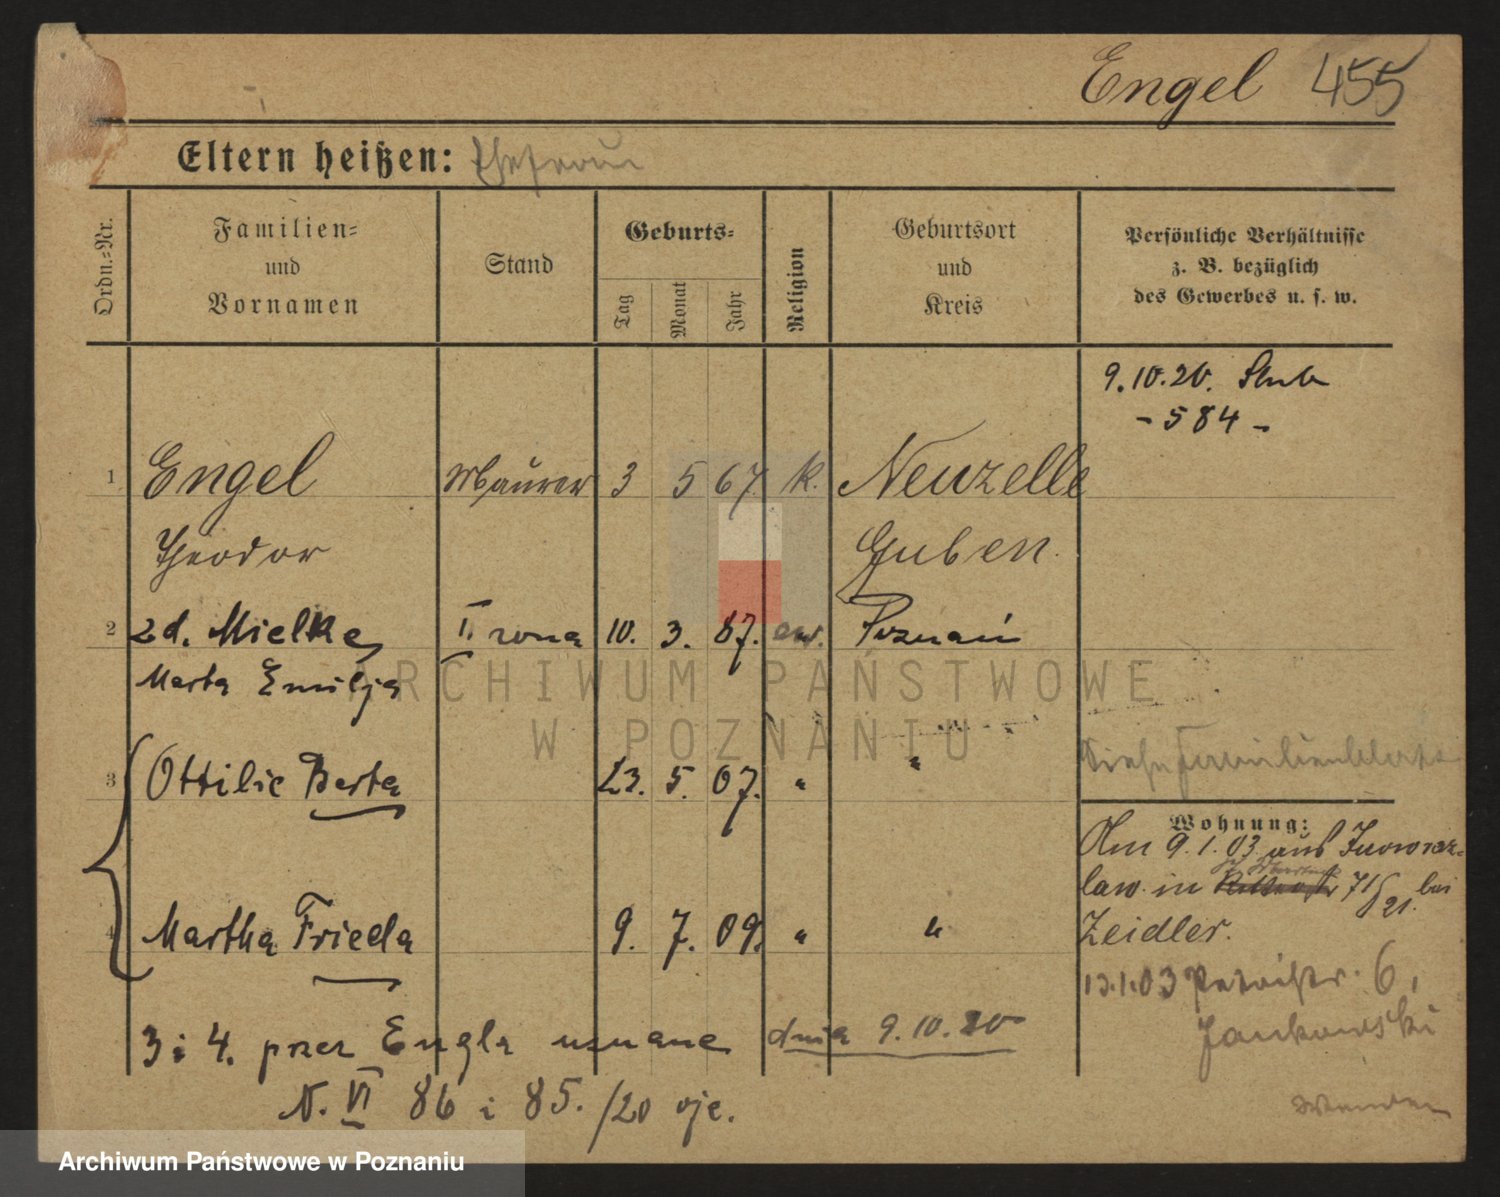 Engel 455
Eltern heißen: Ehefrau
Ordn.=Nr.
Familien=
und
Vornamen
Stand
Geburts=
Tag
Monat
Jahr
Religion
Geburtsort
und
Kreis
Persönliche Verhältnisse
z. B. bezüglich
des Gewerbes u. s. w.
9.10.20. Slub
- 584 -
1 Engel Maurer 3 5 67. k. Neuzelle
Theodor Guben.
2 zd. Mielke II. żona 10. 3. 87. ew. Poznań
Marta Emilja
3 Ottilie Berta 23. 5. 07. " "
Siehe Familienblatt
Wohnung:
Am 9.1.03 aus Inowraz-
law in 71/21. bei
4 Martha Frieda 9. 7. 09. " "
Zeidler.
13.1.03 Petristr. 6,
Jankowski
3 i 4. przez Engla uznane dnia 9.10.20
N. VI 86 i 85./20 oje.
ARCHIWUM PAŃSTWOWE
W POZNANIU
Archiwum Państwowe w Poznaniu